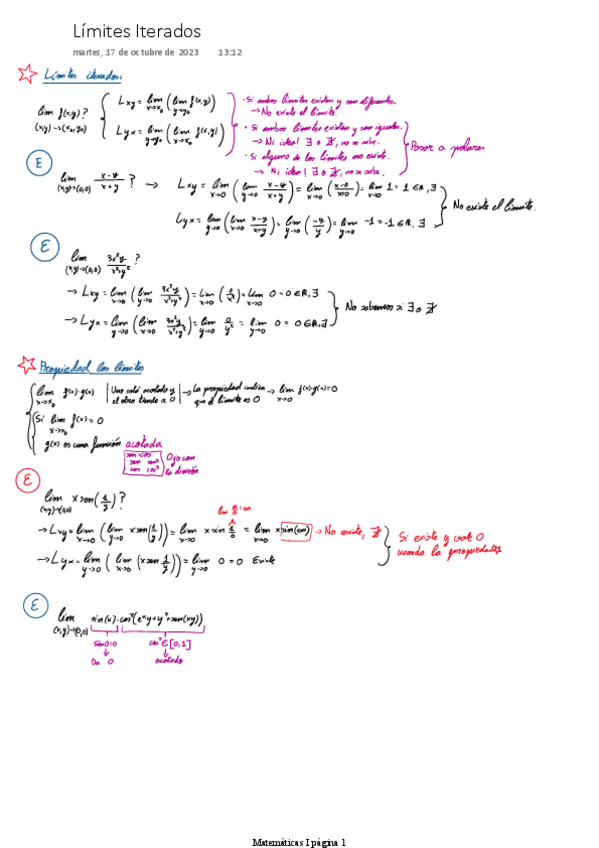 Límites Iterados
martes, 17 de octubre de 2023 13:12
Límites iterados:
lim f(x,y)?
(x,y)→(x₀,y₀)
Lxy = lim x→x₀ ( lim y→y₀ f(x,y))
Lyx = lim y→y₀ ( lim x→x₀ f(x,y))
· Si ambos límites existen y son diferentes.
→ No existe el límite.
· Si ambos límites existen y son iguales.
→ Ni idea! ∃ o ∄, no se sabe.
· Si alguno de los límites no existe.
→ Ni idea! ∃ o ∄, no se sabe.
Pasar a polares
E
lim (x,y)→(0,0) x-y/x+y ? → Lxy = lim x→0 ( lim y→0 x-y/x+y ) = lim x→0 ( x-0/x+0 ) = lim x→0 1 = 1 ∈ ℝ, ∃
Lyx = lim y→0 ( lim x→0 x-y/x+y ) = lim y→0 ( -y/y ) = lim y→0 -1 = -1 ∈ ℝ, ∃
No existe el límite.
E
lim (x,y)→(0,0) 3x²y/x²+y² ?
→ Lxy = lim x→0 ( lim y→0 3x²y/x²+y² ) = lim x→0 ( 0/x² ) = lim x→0 0 = 0 ∈ ℝ, ∃
→ Lyx = lim y→0 ( lim x→0 3x²y/x²+y² ) = lim y→0 0/y² = lim y→0 0 = 0 ∈ ℝ, ∃
No sabemos si ∃ o ∄
Propiedad los límites
lim x→x₀ f(x)·g(x) | Uno está acotado y el otro tiende a 0 | → La propiedad indica que el límite es 0 → lim x→0 f(x)·g(x)=0
Si lim x→x₀ f(x) = 0
g(x) es una función acotada
sen cos
sen sen²
cos cos²
Ojo con la división
E
lim (x,y)→(0,0) x sen(1/y)?
lim a/0 = ∞
→ Lxy = lim x→0 ( lim y→0 x sen(1/y)) = lim x→0 x sin 1/0 = lim x→0 x sin(∞) → No existe, ∄
→ Lyx = lim y→0 ( lim x→0 (x sen 1/y)) = lim y→0 0 = 0 Existe
Si existe y vale 0
usando la propiedad
E
lim (x,y)→(0,0) sin(x)·cos²(eˣy+y²+sen(xy))
sin0=0 cos²∈[0,1]
↓ ↓
Da 0 acotado
Matemáticas I página 1